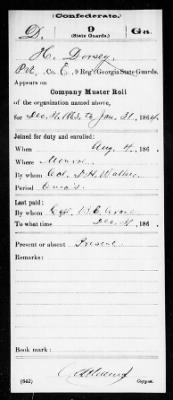 (Confederate.)
D. 9 Ga.
(State Guards.)
H. Dorsey
Pvt, Co. E, 9 Reg't Georgia State Guards.
Appears on
Company Muster Roll
of the organization named above,
for Dec. 14, 1863, to Jan. 31, 1864.
Joined for duty and enrolled:
When Aug. 4, 186
Where Monroe
By whom Col. J. H. Walker
Period 6 mo's.
Last paid:
By whom Capt.
To what time Dec. 14, 186
Present or absent Present
Remarks:
Book mark:
(642) Copyist.